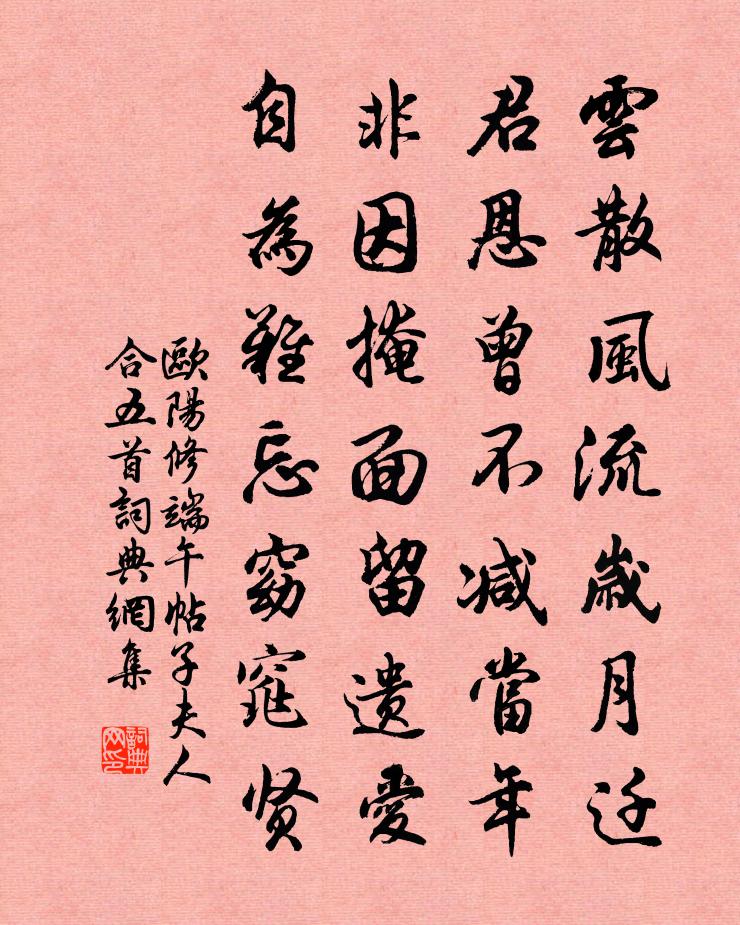 雲散風流歲月迁
君恩曾不减當年
非因掩面留遺愛
自為難忘窈窕贤
歐陽修端午帖子夫人
合五首詞典網集
詞典
网印